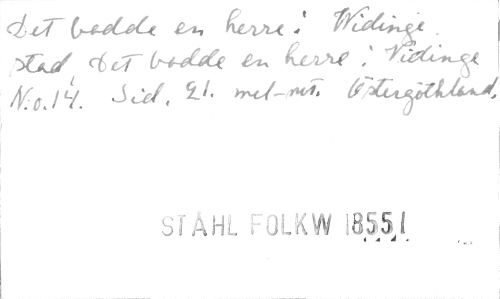 Det bodde en herre i Widinge
stad, Det bodde en herre i Vidinge
N:o.14. Sid. 21. mel-not. Östergöthland.
STÅHL FOLKW 18551